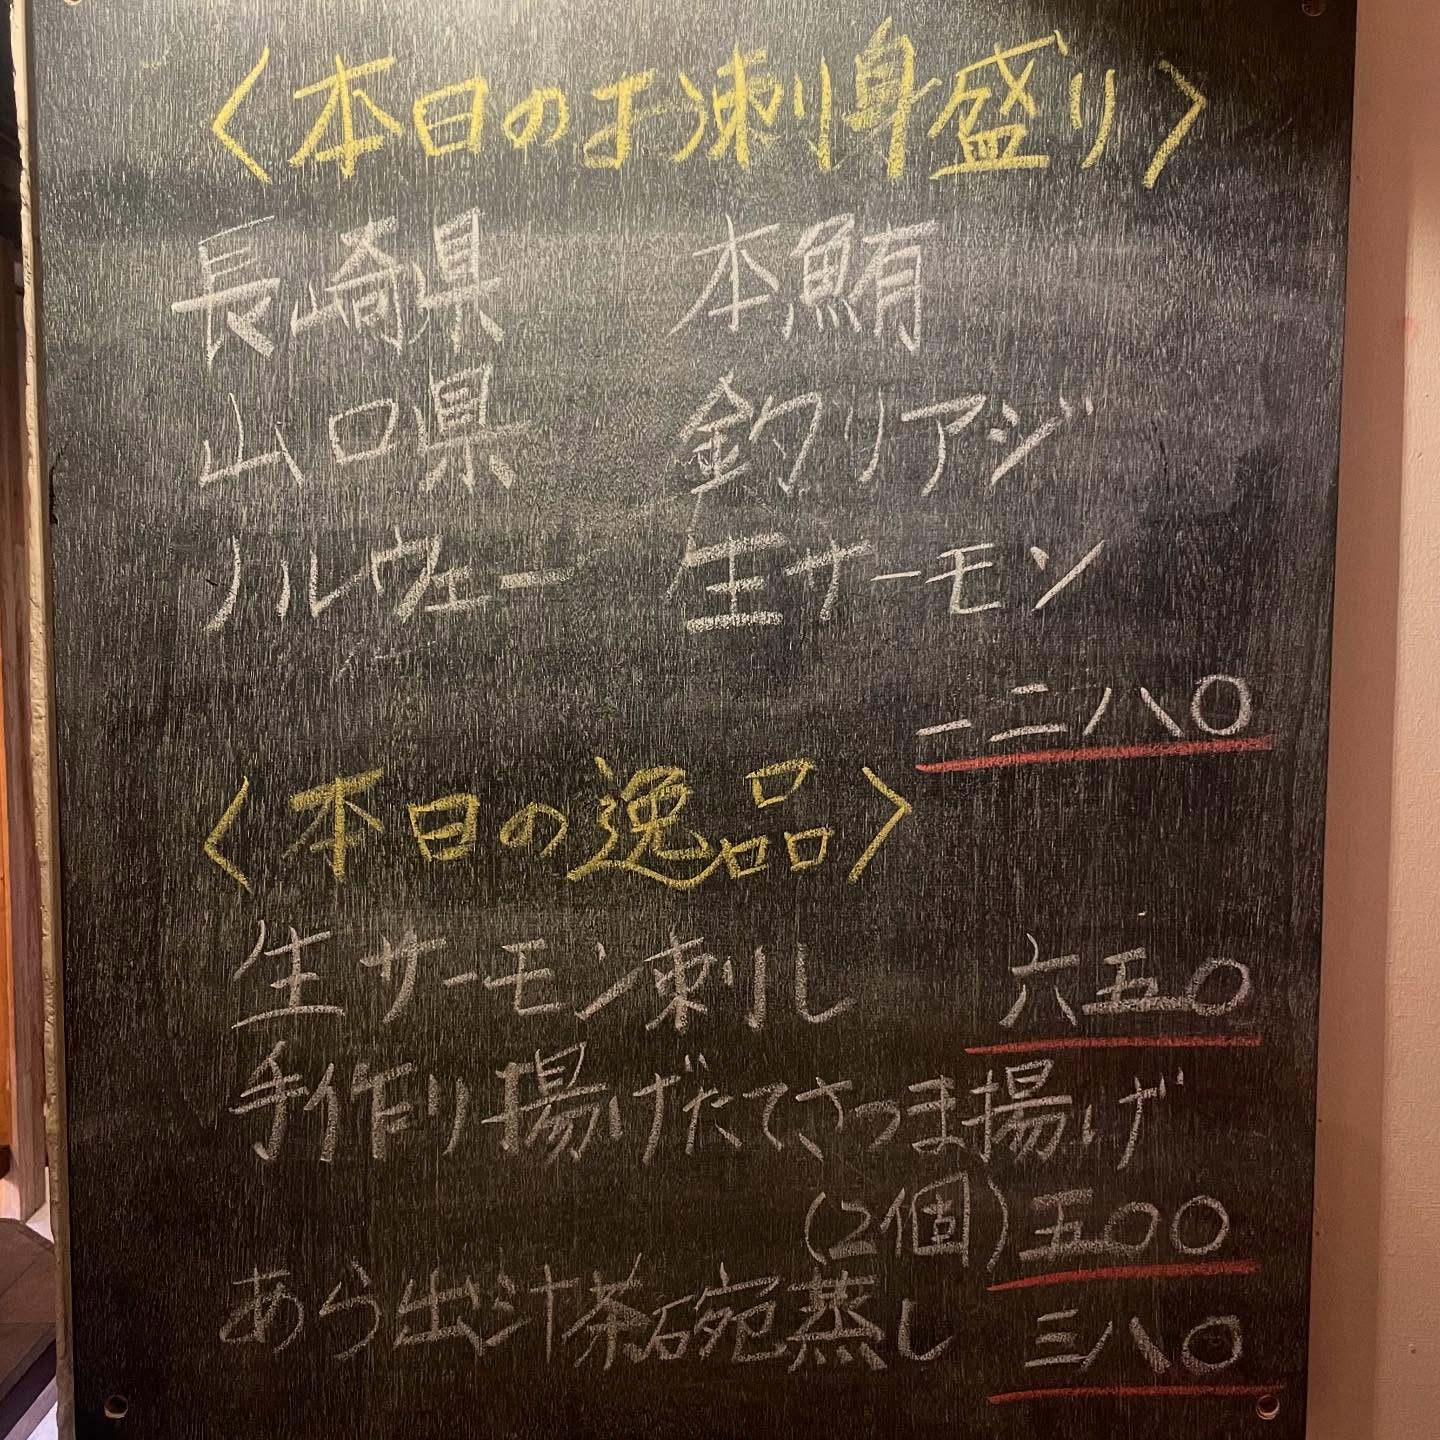 〈本日のお刺身盛り〉
長崎県 本鮪
山口県 釣りアジ
ノルウェー 生サーモン
一二八〇
〈本日の逸品〉
生サーモン刺し 六五〇
手作り揚げたてさつま揚げ
(2個) 五〇〇
あら出汁茶碗蒸し 三八〇